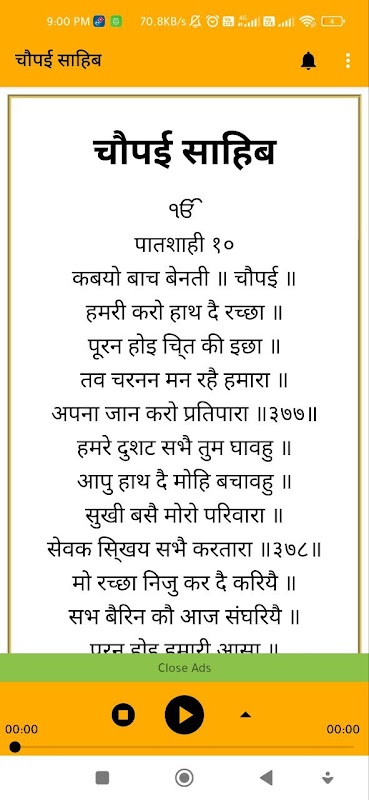 9:00 PM 70.8KB/s 4G 4
चौपई साहिब
चौपई साहिब
ੴ
पातशाही १०
कबयो बाच बेनती ॥ चौपई ॥
हमरी करो हाथ दै रच्छा ॥
पूरन होइ चि्त की इछा ॥
तव चरनन मन रहै हमारा ॥
अपना जान करो प्रतिपारा ॥३७७॥
हमरे दुशट सभै तुम घावहु ॥
आपु हाथ दै मोहि बचावहु ॥
सुखी बसै मोरो परिवारा ॥
सेवक सि्खय सभै करतारा ॥३७८॥
मो रच्छा निजु कर दै करियै ॥
सभ बैरिन कौ आज संघरियै ॥
पूरन होइ हमारी आसा ॥
Close Ads
00:00 00:00